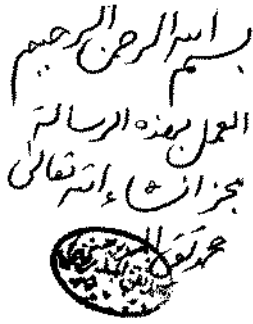 بسم الله الرحمن الرحیم
العمل بهذه الرسالة
مجز انشاء الله تعالی
محمد تقی